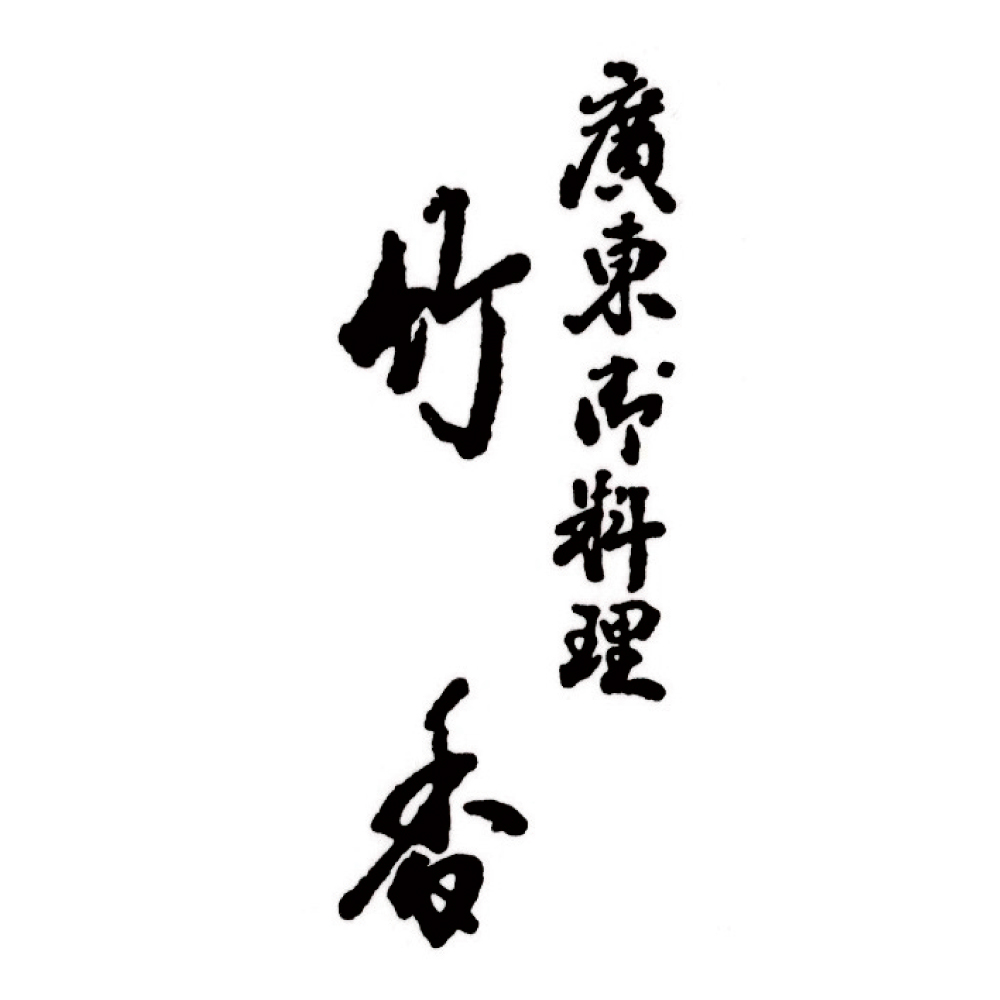 廣東御料理
竹香